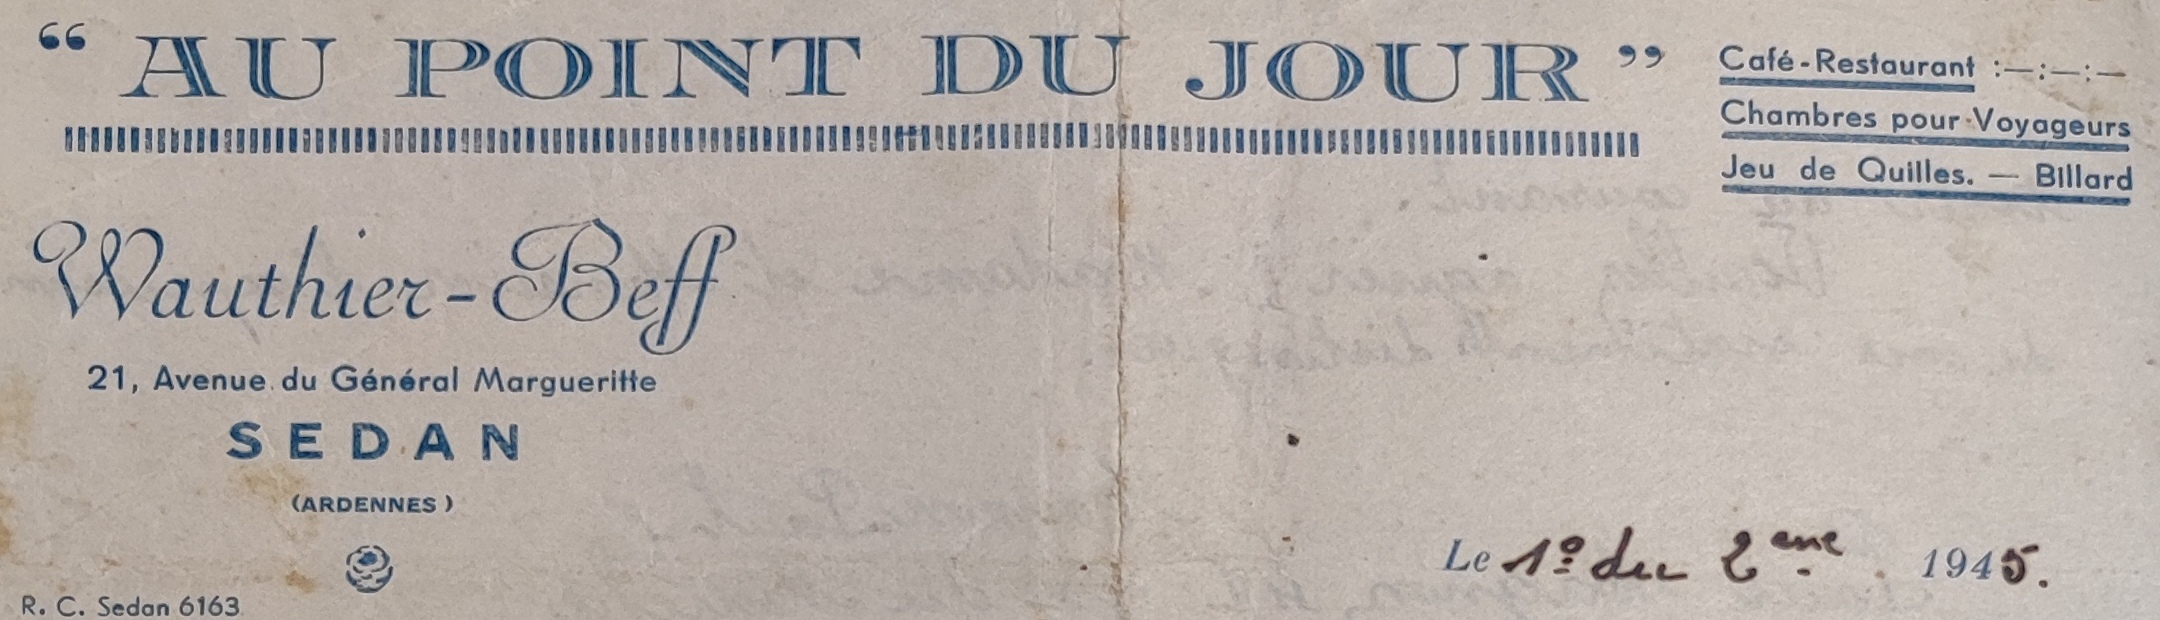 “ AU POINT DU JOUR ”
Café-Restaurant :—:—:—
Chambres pour Voyageurs
Jeu de Quilles. — Billard
Wauthier-Beff
21, Avenue du Général Margueritte
SEDAN
(ARDENNES)
Le 1º du 2ème 1945.
R. C. Sedan 6163